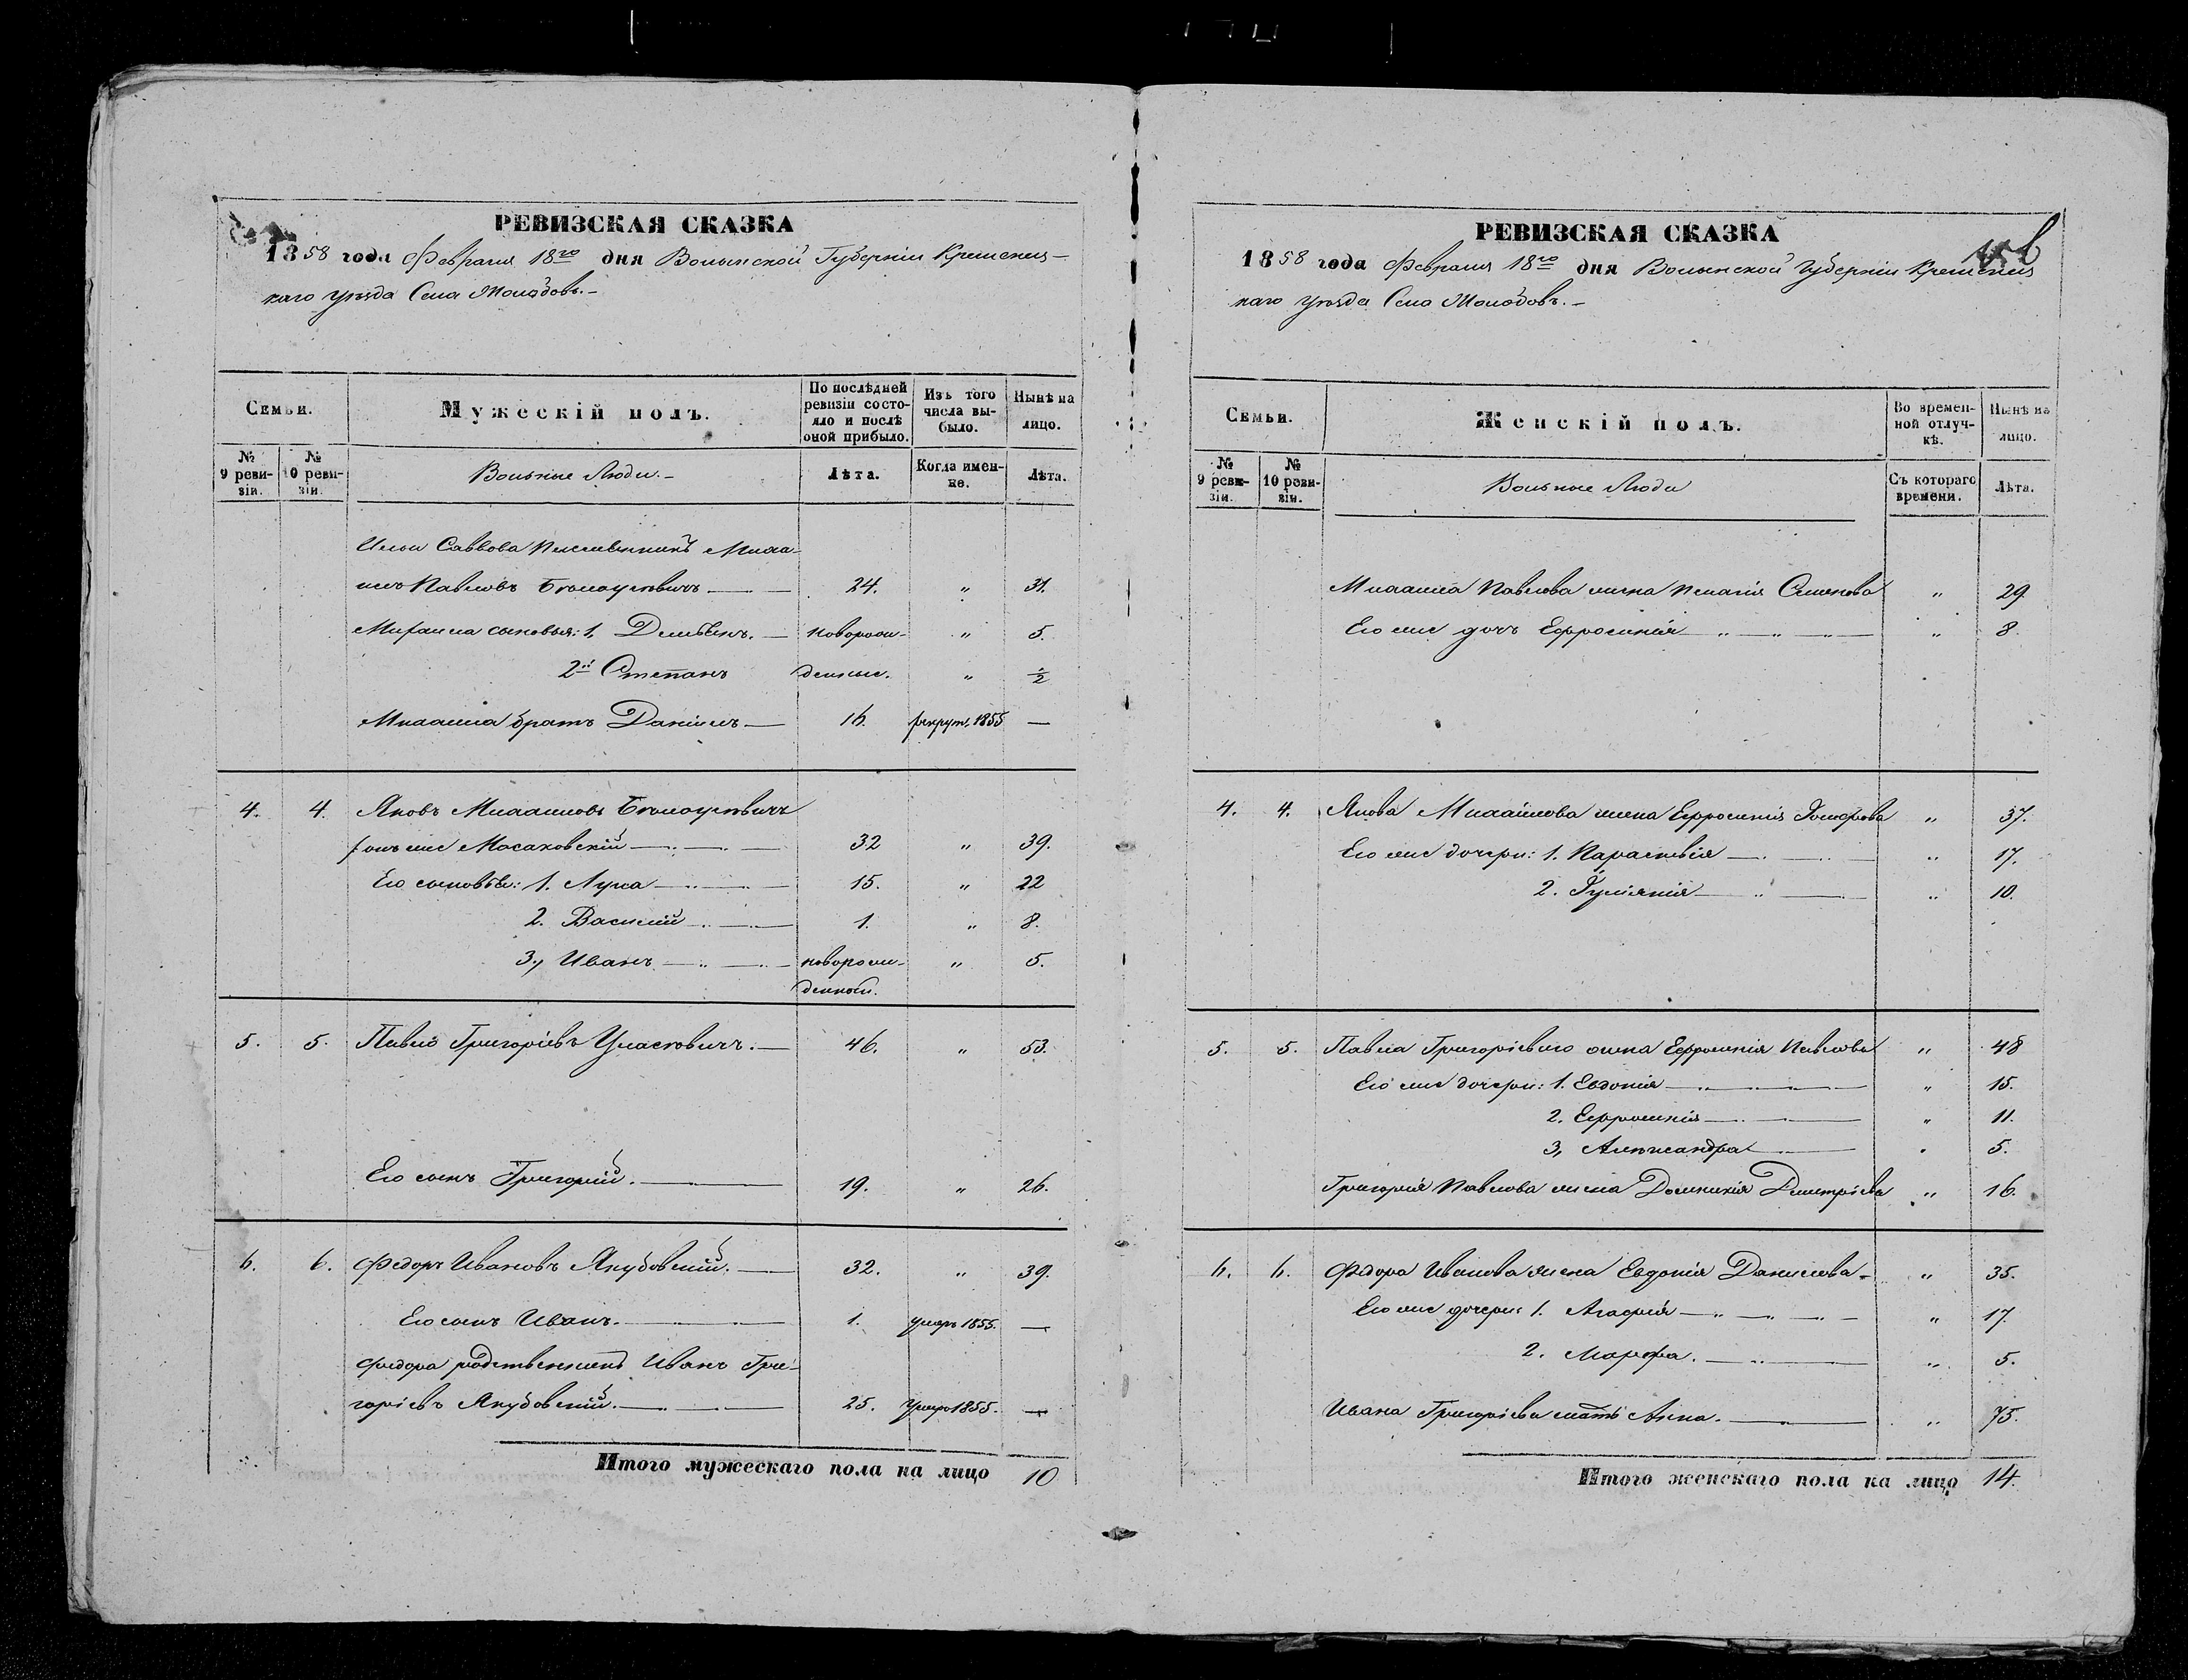 РЕВИЗСКАЯ СКАЗКА
1858 года Февраля 18го дня Волынской Губерніи Кременец-
каго уѣзда Села Молодовъ.-
Семьи.
Мужескій полъ.
По послѣдней
ревизіи состо-
яло и послѣ
оной прибыло.
Изъ того
числа вы-
было.
Нынѣ на
лицо.
№
9 реви-
зіи.
№
10 реви-
зіи.
Вольные Люди.-
Лѣта.
Когда имен-
но.
Лѣта.
Ильи Саввова племянникъ Миха-
илъ Павловъ 24. " 31.
Михаила сыновья: 1. новорож- " 5.
2й Степанъ денные. " ½
Михаила братъ Даніилъ 16. рекрут. 1855 —
4. 4. Яковъ Михаиловъ
онъ же Масаковскій 32 " 39.
Его сыновья: 1. Лука 15. " 22
2. Василий 1. " 8.
3, Иванъ новорож- " 5.
денный.
5. 5. Павелъ Григоріевъ Уласовичъ. 46. " 53.
Его сынъ Григорій. 19. " 26.
6. 6. Федоръ Ивановъ Якубовскій. 32. " 39.
Его сынъ Иванъ. 1. умеръ 1855. —
Федора родственникъ Иванъ Гри-
горіевъ Якубовскій. 25. умеръ 1855. —
Итого мужескаго пола на лицо 10
РЕВИЗСКАЯ СКАЗКА
1858 года Февраля 18го дня Волынской Губерніи Кременец
каго уѣзда Села Молодовъ.-
Семьи.
Женскій полъ.
Во времен-
ной отлуч-
кѣ.
Нынѣ на
лицо.
№
9 реви-
зіи.
№
10 реви-
зіи.
Вольные Люди
Съ котораго
времени.
Лѣта.
Михаила Павлова жена Пелагія Семенова " 29
Его же дочь Ефросинія " 8.
4. 4. Якова Михайлова жена Ефросинія " 37.
Его же дочери: 1. Параскевія " 17.
2. Іуліянія " 10.
5. 5. Павла Григоріева жена Ефросинія Павлова " 48
Его же дочери: 1. Евдокія " 15.
2. Ефросинія " 11.
3, Александра " 5.
Григорія Павлова жена Домникія Дмитріева " 16.
6. 6. Федора Иванова жена Евдокія Данилова " 35.
Его же дочери: 1. Агафія " 17.
2. Марфа. " 5.
Ивана Григоріева мать Анна. " 75.
Итого женскаго пола на лицо 14.